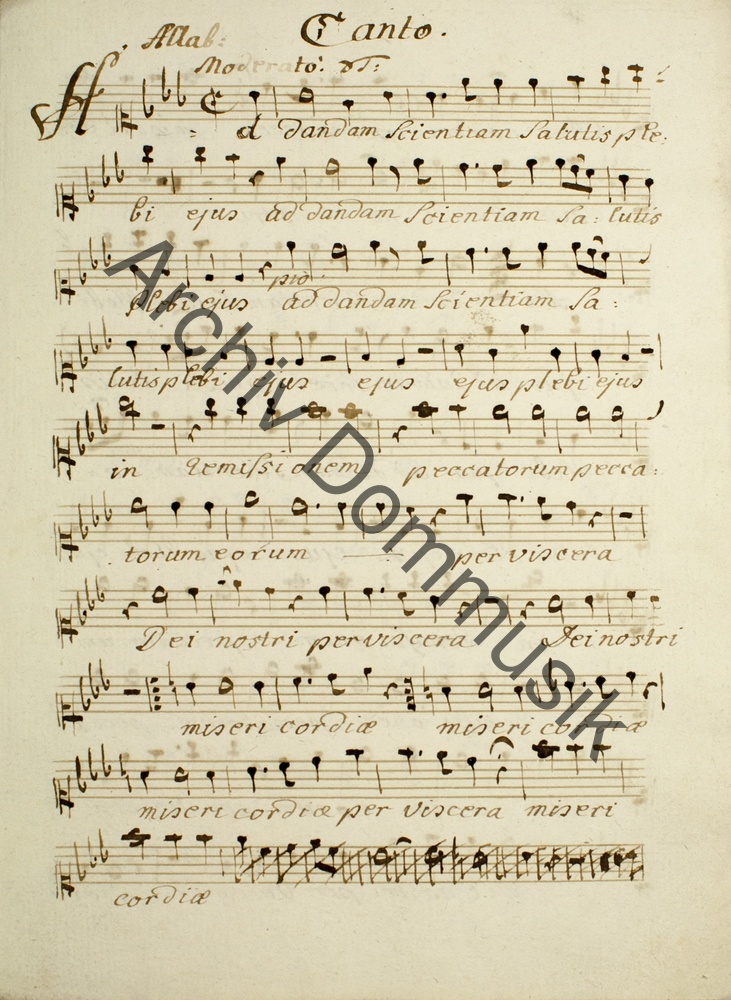 Canto.
Allab:
Moderato:
Ad dandam scientiam salutis ple:
bi ejus ad dandam scientiam sa: lutis
plebi ejus ad dandam scientiam sa:
pio:
lutis plebi ejus ejus ejus plebi ejus
in remissionem peccatorum pecca:
torum eorum per viscera
Dei nostri per viscera Dei nostri
misericordiæ misericordiæ
misericordiæ per viscera miseri
cordiæ
Archiv Dommusik